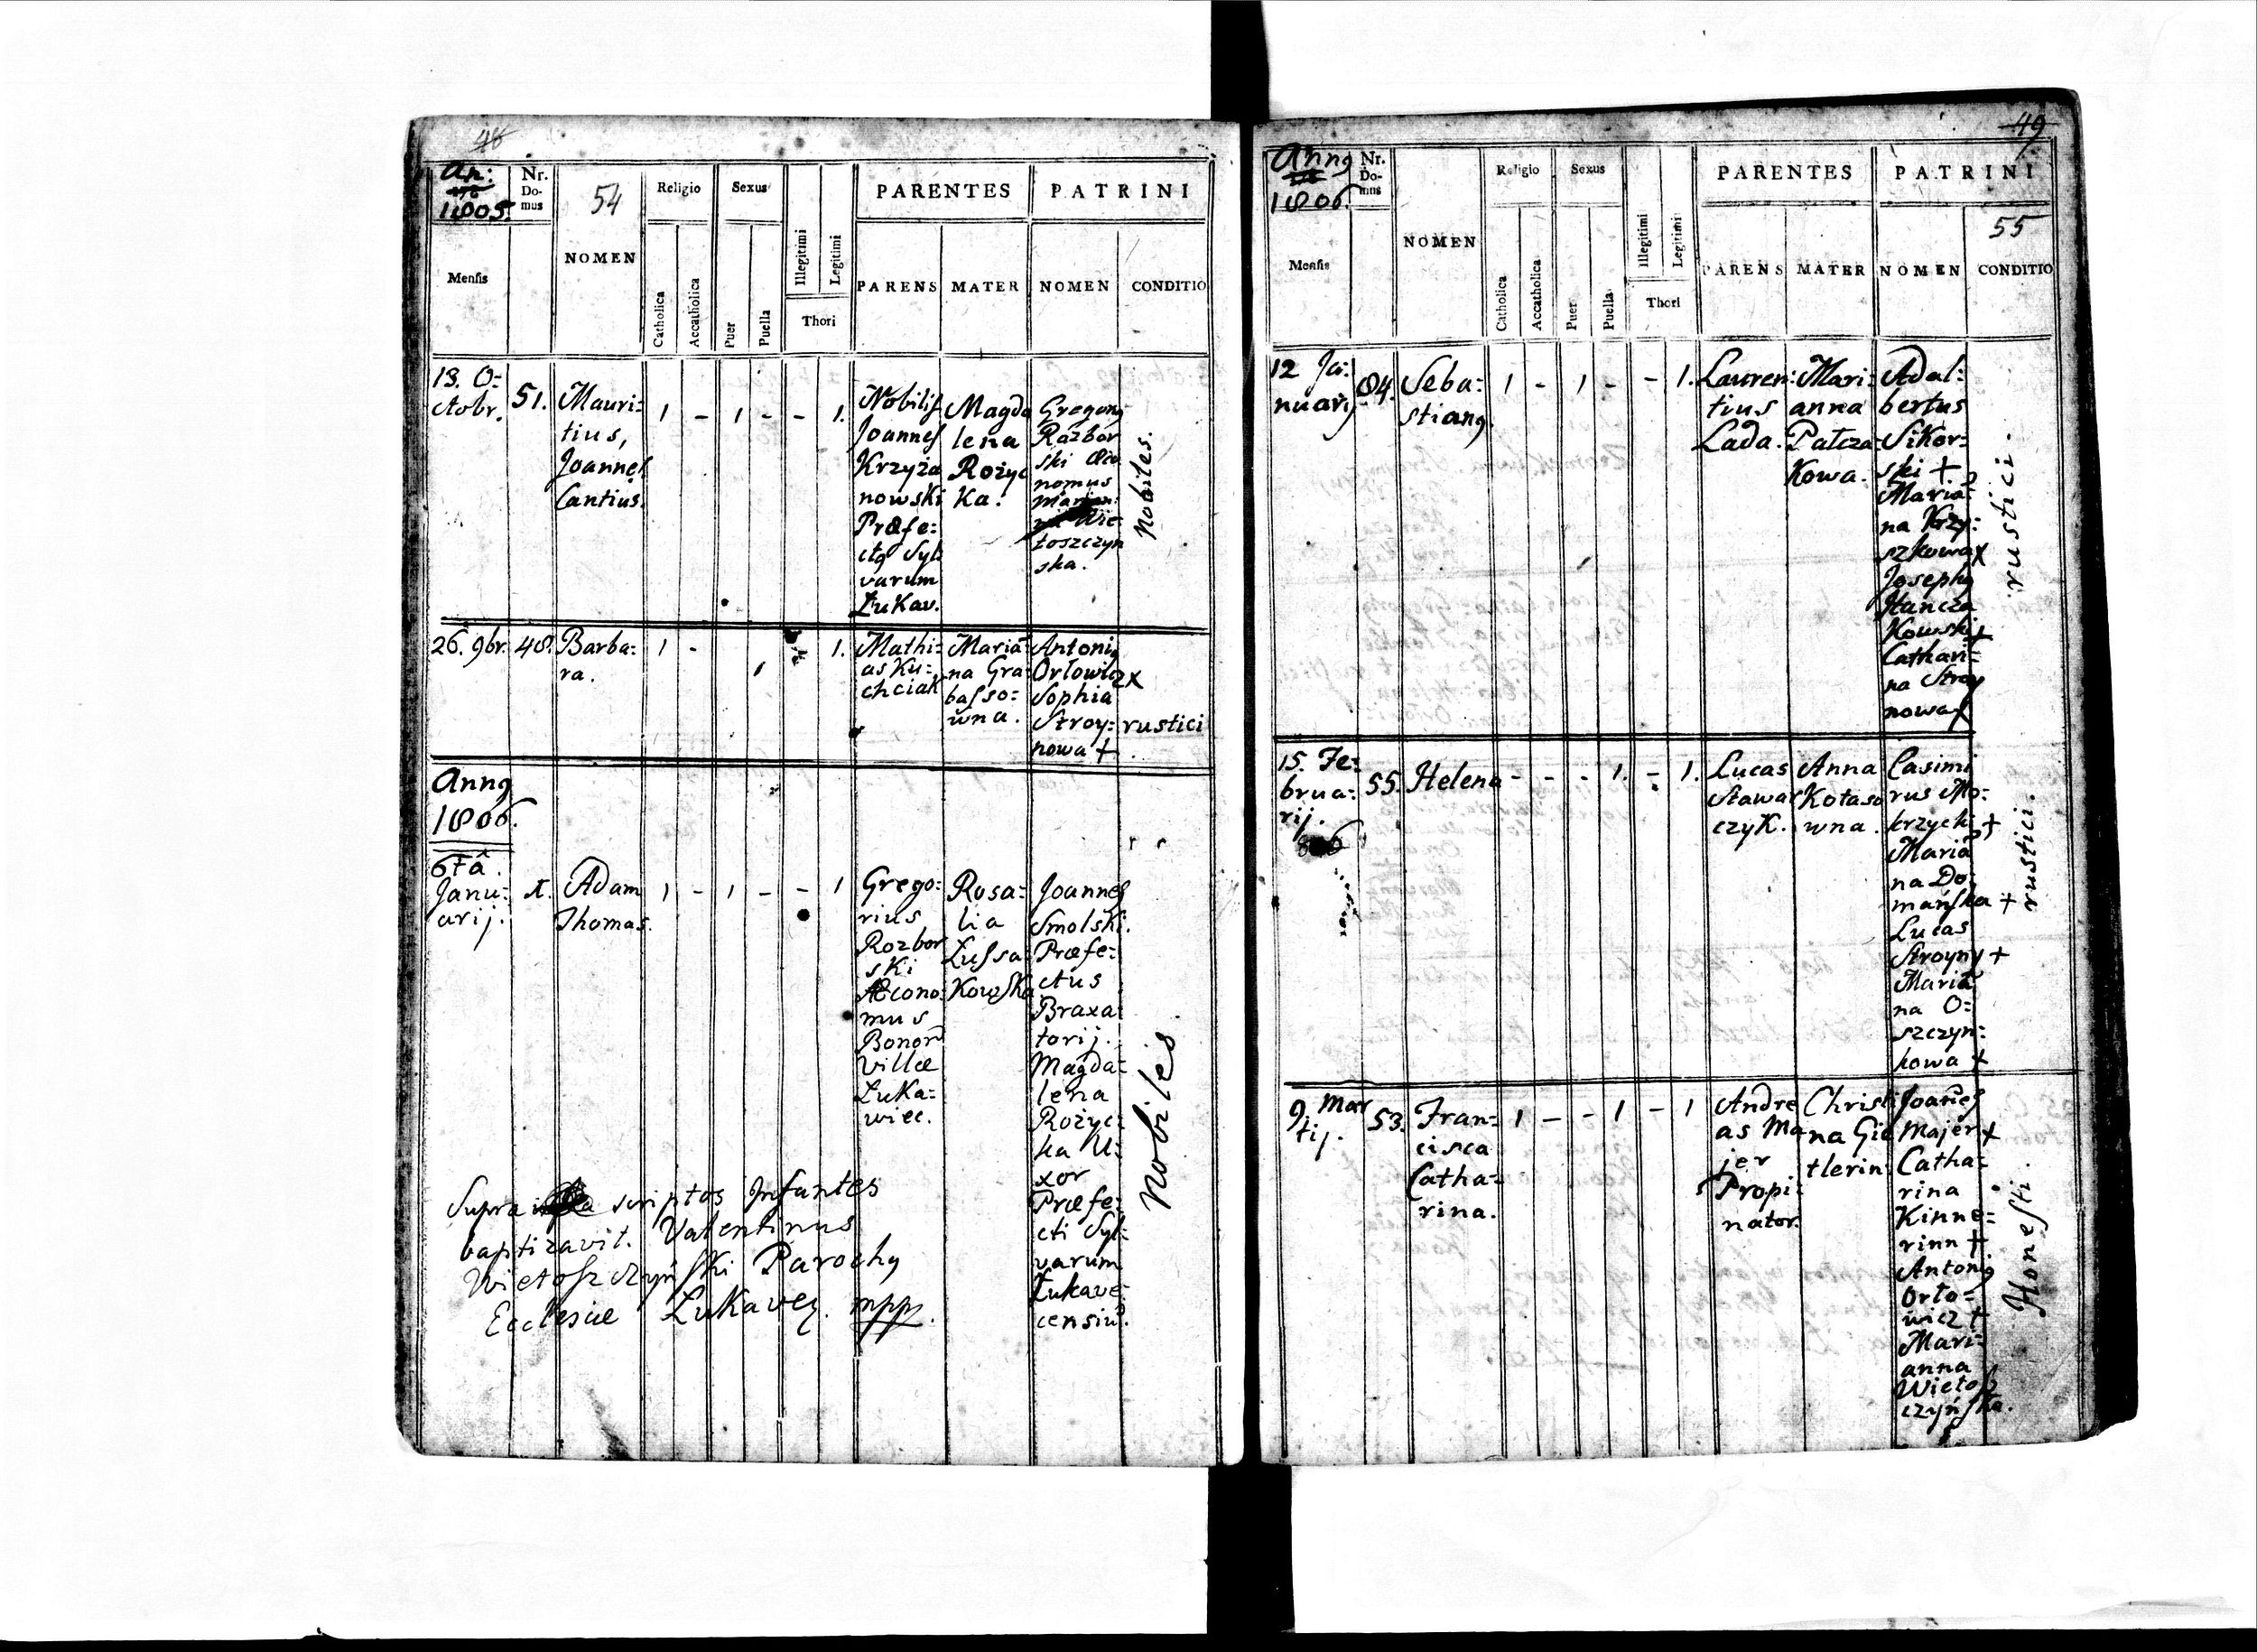 48
An:
178
1805.
Nr.
Do-
mus
54
NOMEN
Religio
Sexus
Illegitimi
Legitimi
PARENTES
PATRINI
Mensis
Catholica
Accatholica
Puer
Puella
Thori
PARENS
MATER
NOMEN
CONDITIO
13. O=
ctobr.
51.
Mauri=
tius,
Joannes
Cantius.
1 - 1 - - 1.
Nobilis
Joannes
Krzyża
nowski
Præfe=
ctq Syl
varum
Łukav.
Magda
lena
Rożyc
ka.
Gregorij
Razbor
ski Œco
nomus
Wie
toszczyn
ska.
Nobiles.
26. 9br.
48.
Barba=
ra.
1 - 1 1.
Mathi=
as Ku=
chciak
Maria=
na Gra=
basso=
wna.
Antoni9
Orłowicz x
Sophia
Stroy=
nowa +
rustici
Ann9
1806.
6tâ.
Janu=
arij.
1.
Adam
Thomas.
1 - 1 - - 1
Grego=
rius
Rozbor
ski
Æcono=
mus
Bonor
Villæ
Łuka=
wiec.
Rosa=
lia
Łussa=
Kowska
Joannes
Smolski.
Præfe=
ctus
Braxa
torij.
Magda=
lena
Rożyc=
ka U=
xor
Præfe=
cti Syl=
varum
Łukave=
censiū.
Nobiles
Supra scriptos Infantes
baptizavit. Valentinus
Wietoszczyński Paroch9
Ecclesiæ Łukavez. mpp.
49
Ann9
178
1806.
Nr.
Do-
mus
NOMEN
Religio
Sexus
Illegitimi
Legitimi
PARENTES
PATRINI
55
Mensis
Catholica
Accatholica
Puer
Puella
Thori
PARENS
MATER
NOMEN
CONDITIO
12 Ja=
nuarij
84.
Seba=
stian9
1 - 1 - - 1.
Lauren=
tius
Lada.
Mari=
anna
Patcza=
Kowa.
Adal=
bertus
Sikor=
ski +
Maria=
na Krzy=
szkowa x
Joseph9
Hancza
Kowski +
Cathari=
na Stroy
nowa x
rustici.
15. Fe=
brua=
rij.
55.
Helena
- - - 1. - 1.
Lucas
Stawar
czyK.
Anna
Kotaso
wna.
Casimi
rus Mo=
krzycki +
Maria
na Do=
mańska +
Lucas
Stroyny +
Maria
na O=
szczyn=
kowa +
rustici.
9. Mar
tij.
53.
Fran=
cisca
Catha=
rina.
1 - - 1 - 1
Andre
as Ma
jer
Propi=
nator.
Christi
na Gie
tlerin
Joañes
Majer +
Catha=
rina
Kinne=
rinn +
Anton9
Orło=
wicz +
Mari=
anna
Wietosz
czyńska.
Honesti.